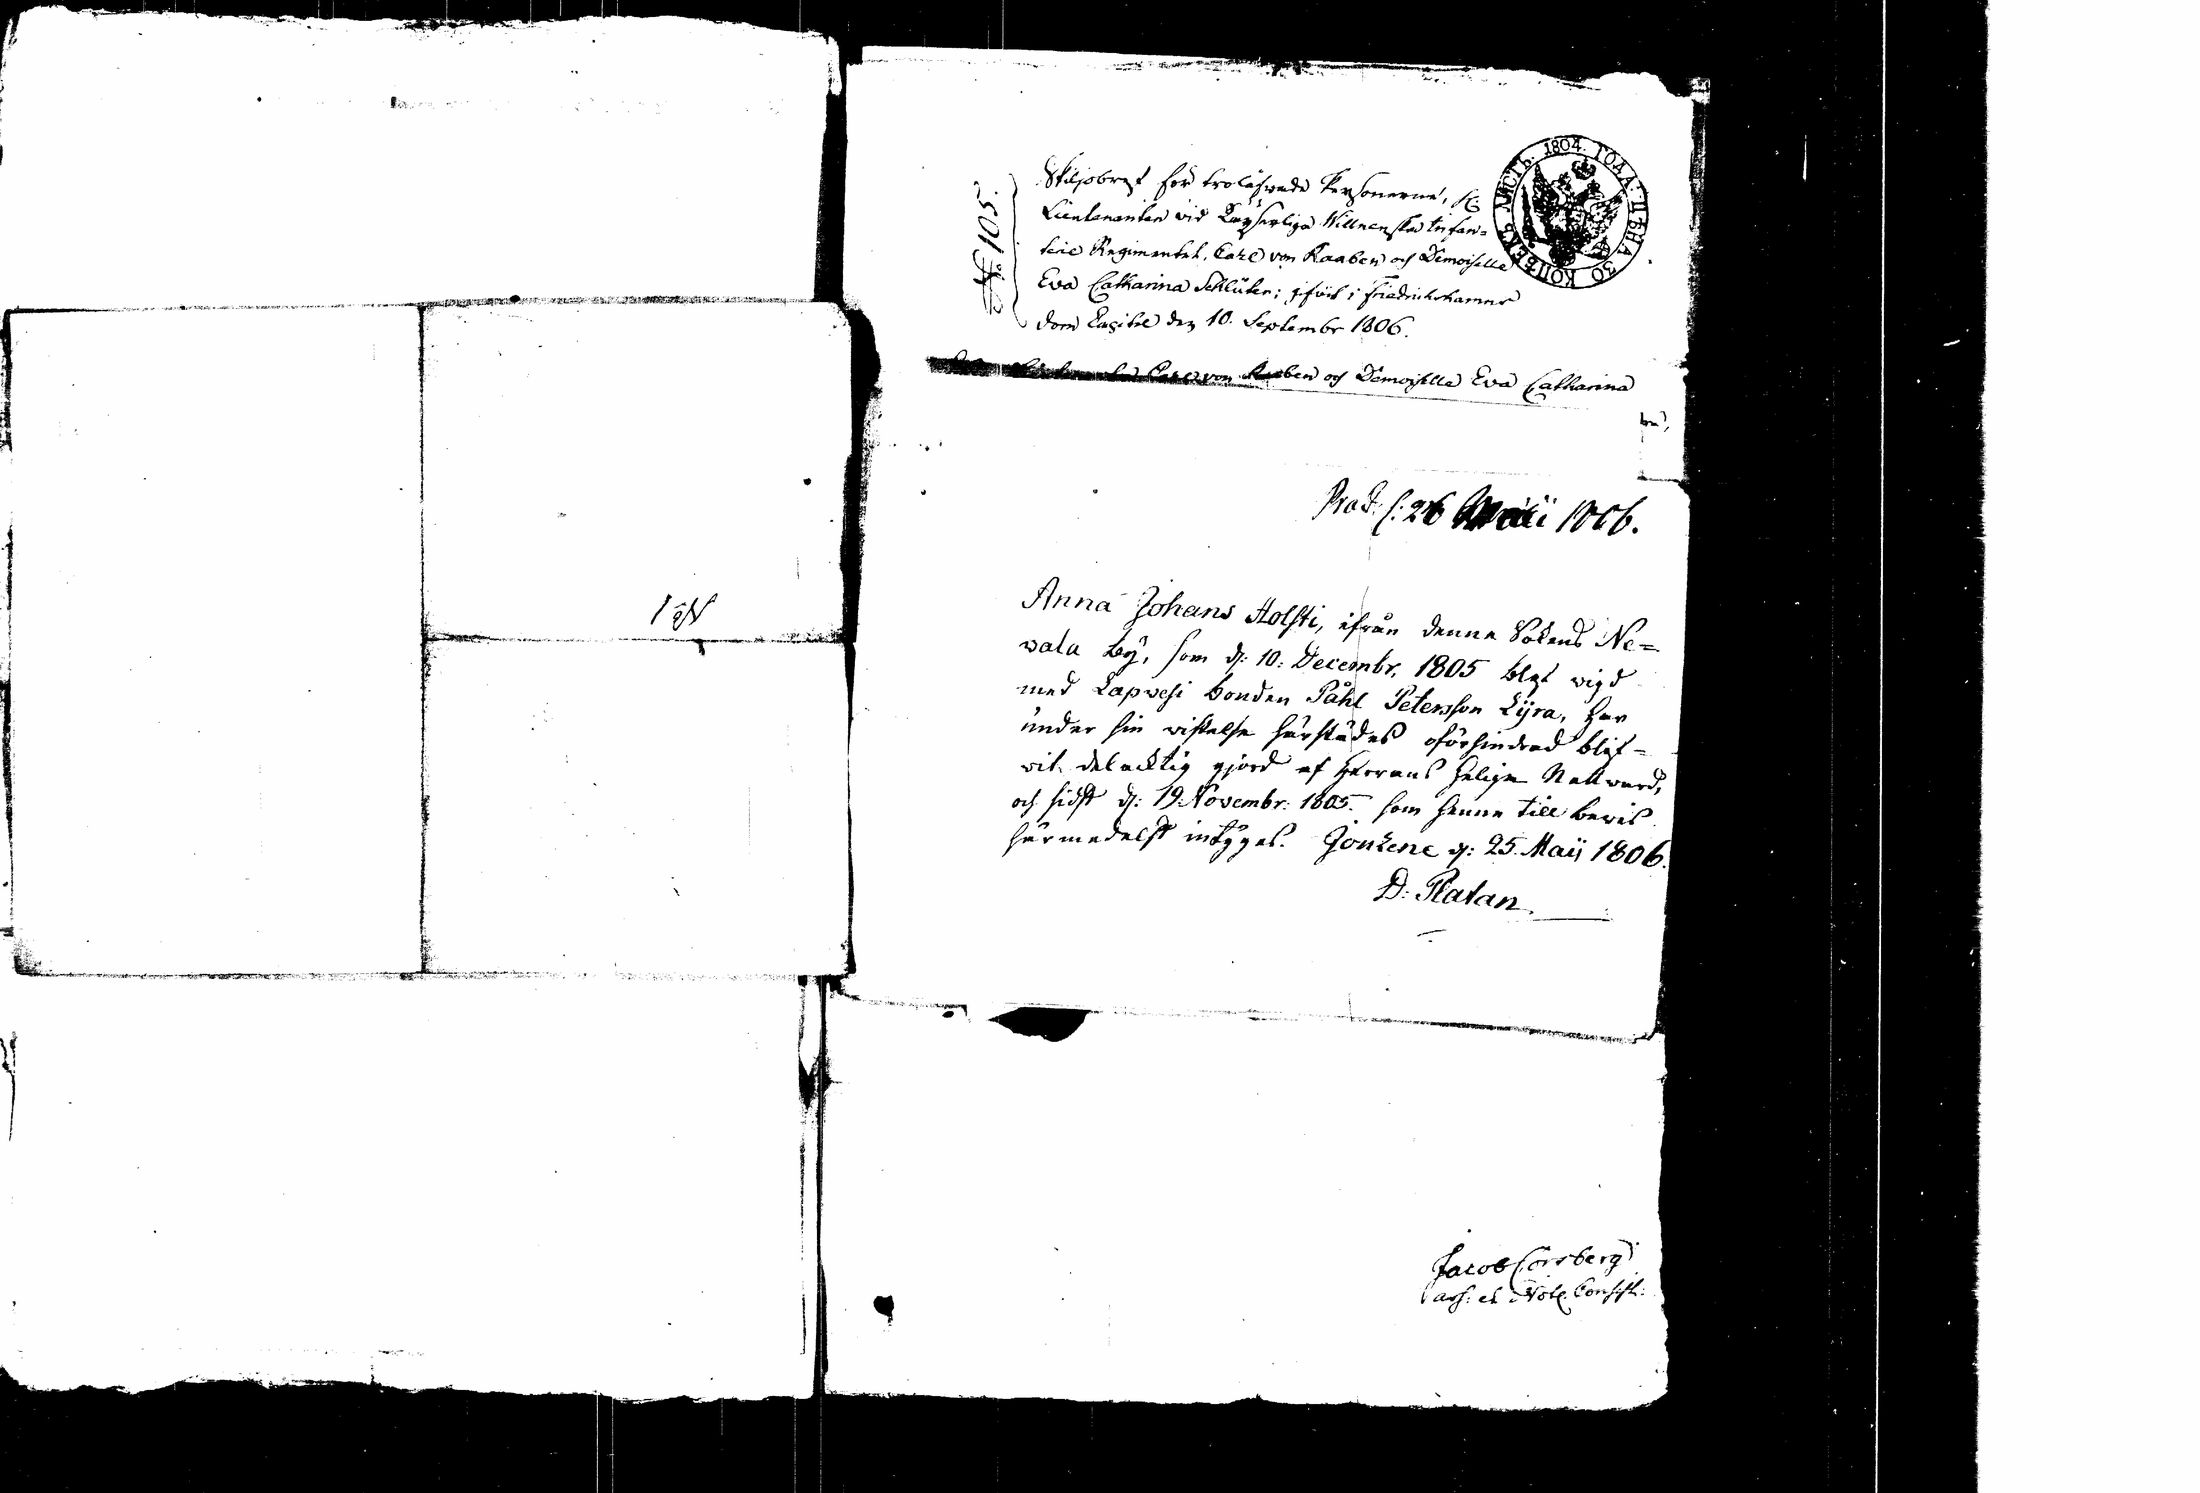 № 105.
Skiljobref för trolåfwade Personerne, H:
Lieutenanten vid Kayserliga Willnenska Infan=
terie Regimentet, Carl von Raaben och Demoiselle
Eva Catharina Schlüter; gifvit i Friedrichshamns
Dom Capitel den 10. Septembr 1806.
ЛИСТЪ. 1804. ГОДА. ЦѢНА 30 КОПѢЕКЪ
Carl von Raaben och Demoiselle Eva Catharina
Prod: d: 26 Maii 1806.
Anna Johans Holsti, ifrån denna Sokens Ne=
vala by, som d: 10: Decembr. 1805 blef vigd
med Lapvesi bonden Påhl Petersson Kyra, har
under sin vistelse härstädes oförhindrad blif=
vit delacktig gjord af Herrans helige Nattward,
och sidst d: 19. Novembr: 1805. som henne till bevis
härmedelst intÿgas. Jonkene d: 25. Maij 1806.
D: Platan
Jacob Forsberg
ass: et Not: Consist: